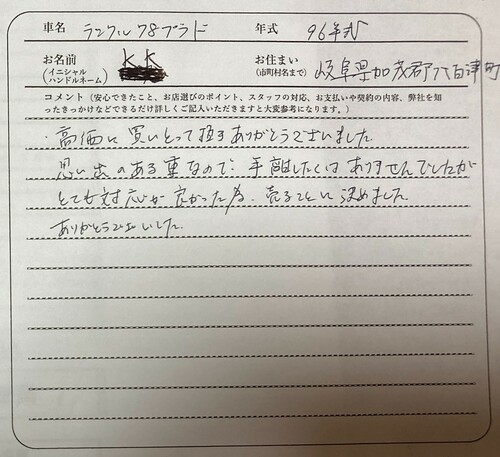 車名 ランクル78プラド 年式 96年式
お名前 KK お住まい 岐阜県加茂郡八百津町
(イニシャル (市町村名まで)
ハンドルネーム)
コメント (安心できたこと、お店選びのポイント、スタッフの対応、お支払いや契約の内容、弊社を知
ったきっかけなどできるだけ詳しくご記入いただきますと大変参考になります。)
・高価に買いとって頂きありがとうございました
思い出のある車なので、手離したくはありませんでしたが
とても対応が良かった為、売ることに決めました
ありがとうございました